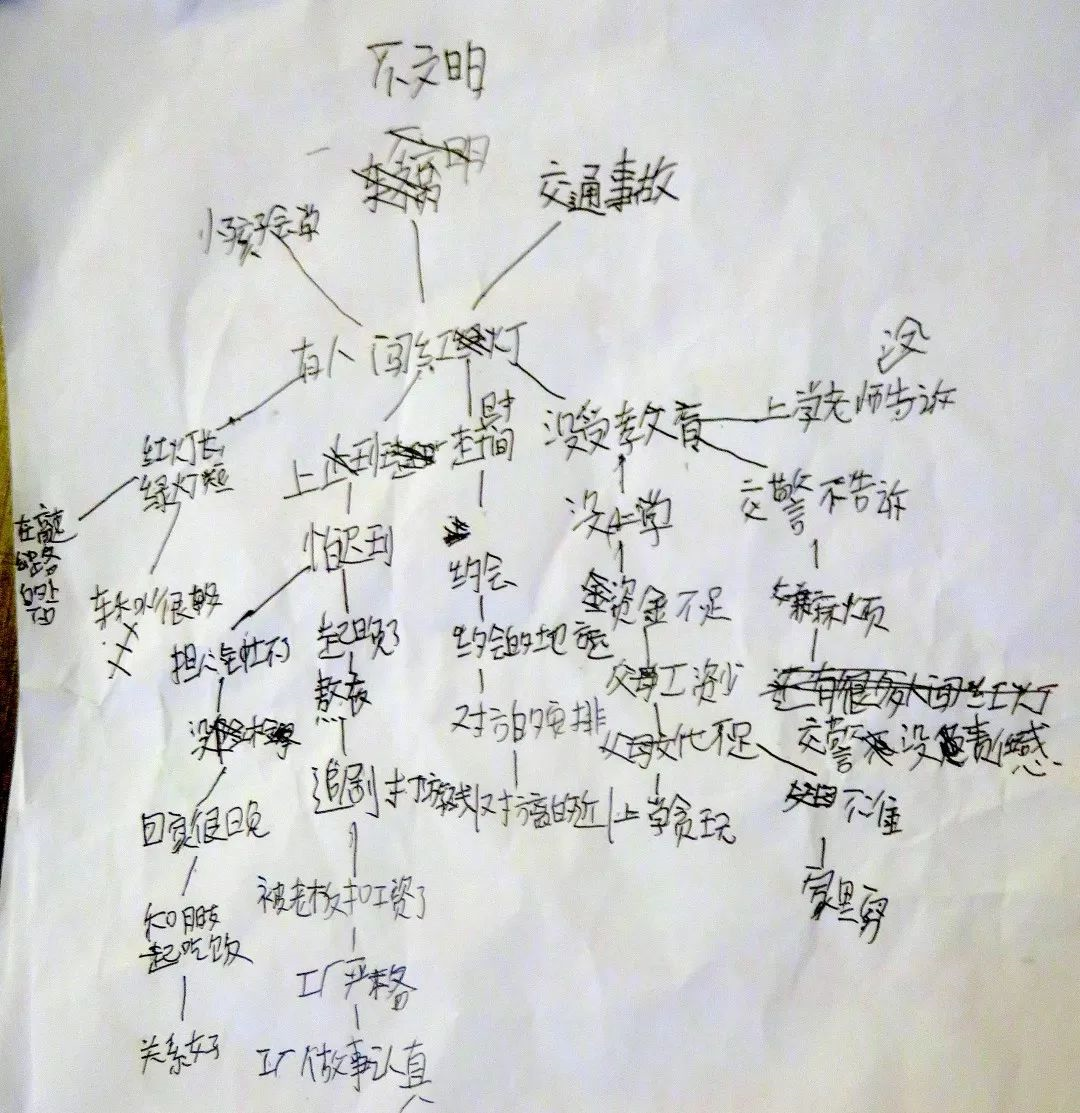 不文明
交通事故
小孩子会学
有人闯红灯
没
上学老师告诉
红灯长
绿灯短
上
赶时间
没受教育
交警不告诉
在高速
公路
的上
面
怕迟到
没上学
约会
很多
资金不足
麻烦
担心
起晚了
约会的地
熬夜
父母工资少
对方安排
父母文化不足
交警没责任感
追剧打游戏
对方离的近
上学贪玩
不准
回家很晚
家里穷
被老板扣工资了
和朋友
一起吃饭
工厂严格
关系好
工厂做事认真